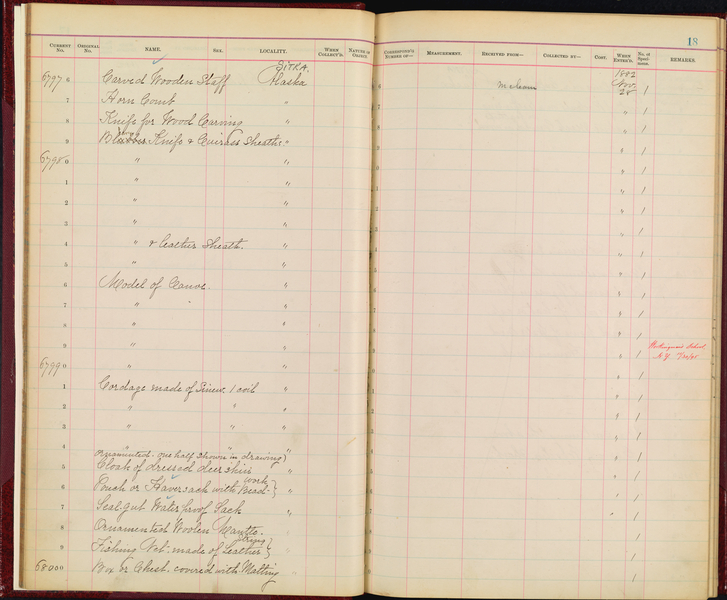 18
CURRENT No. ORIGINAL No. NAME. SEX. LOCALITY. WHEN COLLECT'D. NATURE OF OBJECT.
CORRESPOND'G NUMBER OF— MEASUREMENT. RECEIVED FROM— COLLECTED BY— COST. WHEN ENTER'D. No. of Specimens. REMARKS.
SITKA.
6797 6 Carved Wooden Staff Alaska 6 McLean 1882 Nov. 28 1
7 Horn Comb " " 1
8 Knife for Wood Carving " " 1
9 Knife & Cuirass Sheath. " " 1
6798 0 " " " 1
1 " " " 1
2 " " " 1
3 " " " 1
4 " & leather Sheath. " " 1
5 " " " 1
6 Model of Canoe. " " 1
7 " " " 1
8 " " " 1
9 " " " 1
6799 0 " 1
1 Cordage made of Sinew. 1 coil " " 1
2 " " " " 1
3 " " " " 1
4 Ornamented one half shown in drawing " " 1
5 Cloak of dressed deer skin " " 1
6 Pouch or Haversack with Bead-work } " " 1
7 Seal gut Water proof Sack " " 1
8 Ornamented Woolen Mantle. " 1
9 Fishing Net made of Leather string } " 1
6800 0 Box or Chest. covered with Matting " 1